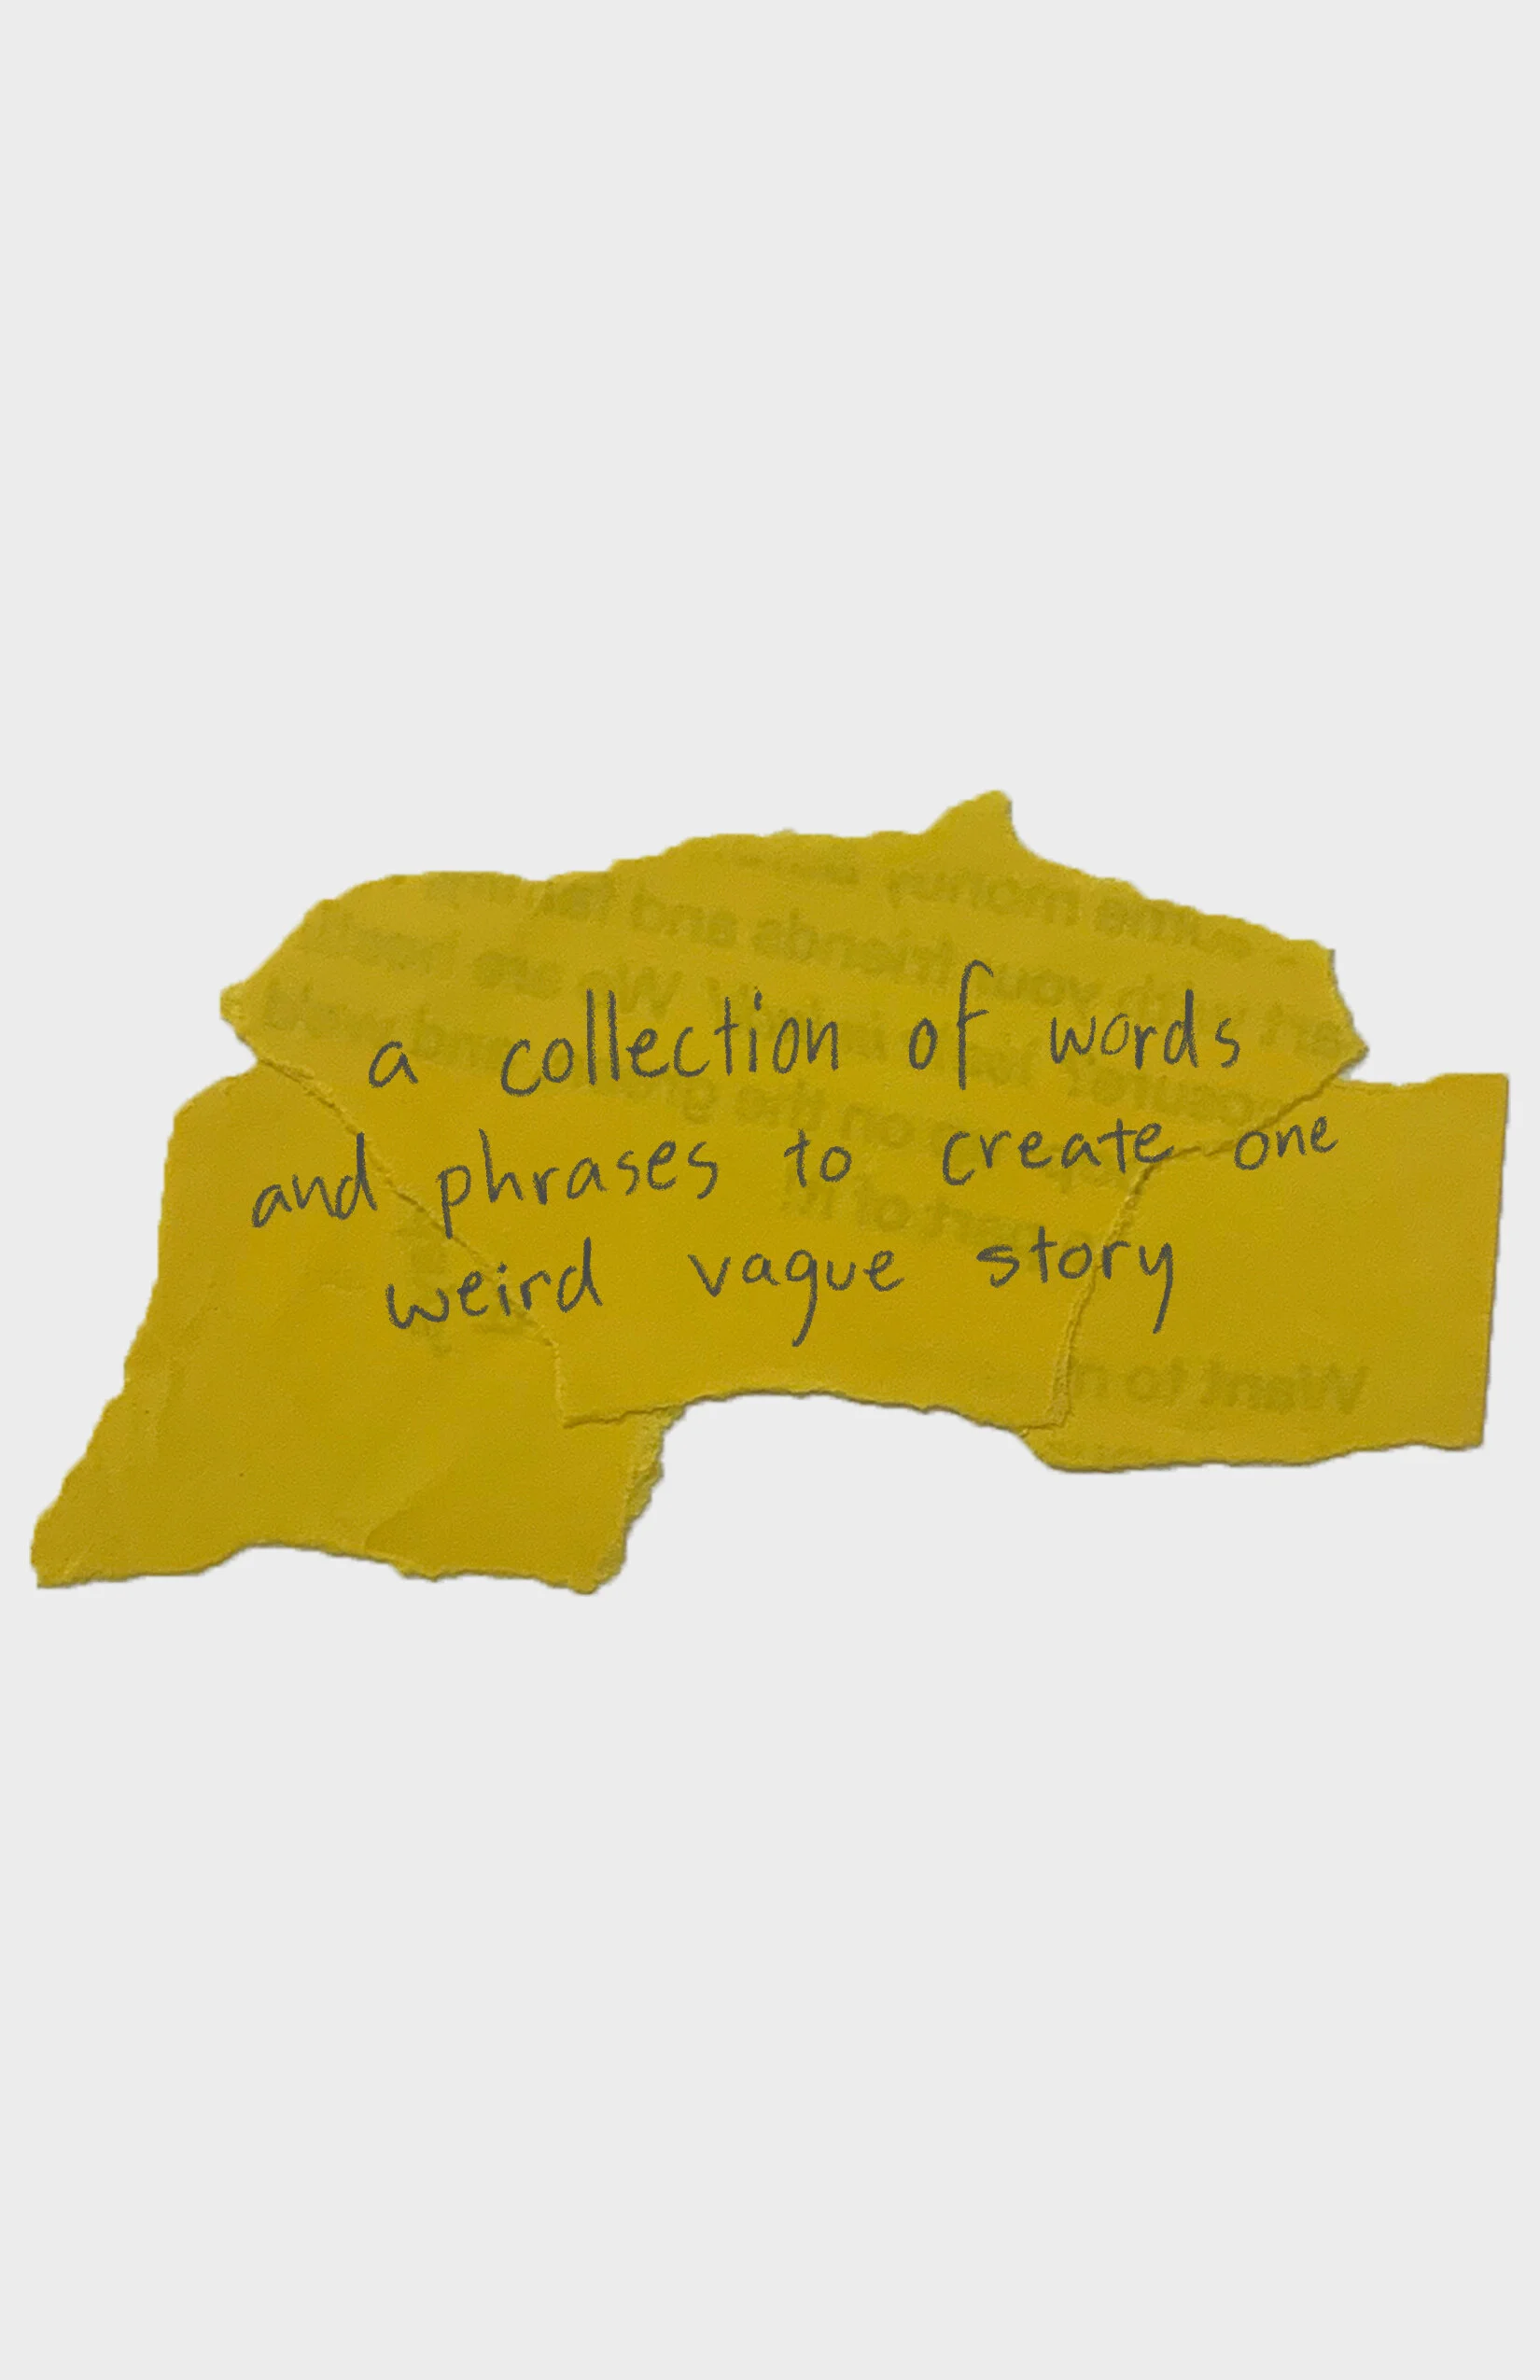 a collection of words
and phrases to create one
weird vague story